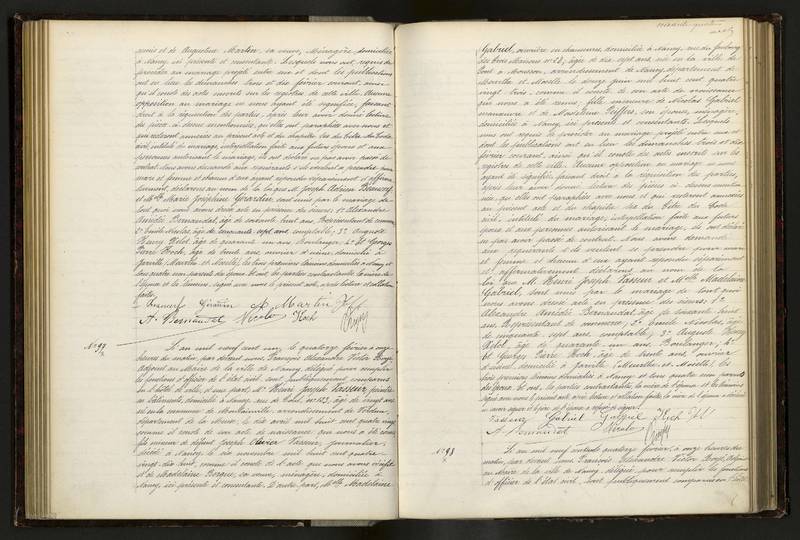 mariés et de Augustine Martin, sa veuve, Ménagère, domiciliée
à Nancy, ici présente et consentante. Lesquels nous ont requis de
procéder au mariage projeté entre eux et dont les publications
ont eu lieu les dimanches trois et dix février courant, ainsi
qu'il conste des actes inscrits sur les registres de cette ville. Aucune
opposition au mariage ne nous ayant été signifiée, faisant
droit à la réquisition des parties, après leur avoir donné lecture
civil, intitulé du mariage, interpellation faite aux futurs époux et aux
personnes autorisant le mariage, ils ont déclaré ne pas avoir passé de
contrat. Nous avons demandé aux requérants s'ils veulent se prendre pour
mari et femme et chacun d'eux ayant répondu séparément et affirma-
tivement, déclarons au nom de la loi que M. Joseph Adrien
et Mlle Marie Joséphine Girardin, sont unis par le mariage. de
tout quoi nous avons dressé acte en présence des sieurs: 1° Alexandre
Amédée Bernardat, âgé de soixante huit ans, Représentant de commerce,
2° Emile Nicolas, âgé de cinquante sept ans, comptable; 3° Auguste
Henry Vélot, âgé de quarante un ans, Boulanger; 4° et Georges
Pierre Koch, âgé de trente ans, ouvrier d'usine, domicilié à
Jarville, (Meurthe et Moselle), les trois premiers témoins domiciliés à Nancy et
tous quatre non parents des époux. Et ont, les parties contractantes, la mère de
l'épouse et les témoins, signé avec nous le présent acte, après lecture et
faite.
Girardin A. Martin
A. Bernardat Nicolas Koch
N° 97
L'an mil neuf cent un, le quatorze février à onze
heures du matin, par devant nous, François Alexandre Victor Boyé
Adjoint au Maire de la ville de Nancy, délégué pour remplir
les fonctions d'officier de l'état civil, sont publiquement comparus
en l'hôtel de ville, d'une part, M. Henri Joseph Vasseur, peintre
en bâtiments, domicilié à Nancy, rue de 123, âgé de vingt ans,
né en la commune de Montblainville, arrondissement de Verdun,
département de la Meuse, le dix avril mil huit cent quatre vingt
comme il conste de son acte de naissance qui nous a été remis,
fils mineur de défunt Joseph Vasseur, journalier,
décédé à Nancy, le dix novembre mil huit cent quatre
vingt dix huit, comme il conste de l'acte que nous avons vérifié
et de Madeleine Bergue, sa veuve, ménagère, domiciliée à
Nancy, ici présente et consentante. D'autre part, Mlle Madeleine
Gabriel, ouvrière en chaussures, domiciliée à Nancy, rue du faubourg
des trois Maisons n° 23, âgée de dix sept ans, née en la ville de
Pont à Mousson, arrondissement de Nancy, département de
Meurthe et Moselle, le douze juin mil huit cent quatre
vingt trois, comme il conste de son acte de naissance
qui nous a été remis, fille mineure de Nicolas Gabriel
manœuvre et de Madeleine Pieffer, son épouse, ménagère,
domiciliés à Nancy, ici présents et consentants. Lesquels
nous ont requis de procéder au mariage projeté entre eux et
dont les publications ont eu lieu les dimanches trois et dix
février courant, ainsi qu'il conste des actes inscrits sur les
registres de cette ville. Aucune opposition au mariage ne nous
ayant été signifiée, faisant droit à la réquisition des parties,
après leur avoir donné lecture des pièces ci-dessus mention-
nées, qui elles ont paraphées avec nous et qui resteront annexées
au présent acte et du chapitre six du titre du Code
civil, intitulé du mariage, interpellation faite aux futurs
époux et aux personnes autorisant le mariage, ils ont déclaré
ne pas avoir passé de contrat. Nous avons demandé
aux requérants s'ils veulent se prendre pour mari
et femme et chacun d'eux ayant répondu séparément
et affirmativement, déclarons au nom de la
loi que M. Henri Joseph Vasseur et Mlle Madeleine
Gabriel, sont unis par le mariage. de tout quoi
nous avons dressé acte en présence des sieurs: 1°
Alexandre Amédée Bernardat, âgé de soixante huit
ans, Représentant de commerce; 2° Emile Nicolas, âgé
de cinquante sept ans, comptable; 3° Auguste Henry
Vélot, âgé de quarante un ans, Boulanger; 4°
et Georges Pierre Koch, âgé de trente ans, ouvrier
d'usine, domicilié à Jarville, (Meurthe et Moselle), les
trois premiers témoins domiciliés à Nancy et tous quatre non parents
des époux. Et ont, les parties contractantes, la mère de l'épouse et les témoins
signé avec nous le présent acte, après lecture et
Vasseur Gabriel Gabriel Koch
A. Bernardat Nicolas
N° 98
L'an mil neuf cent un, le quatorze février, à onze heures du
matin, par devant nous, François Alexandre Victor Boyé, Adjoint
au Maire de la ville de Nancy, délégué, pour remplir les fonctions
d'officier de l'état civil, sont publiquement comparus en l'hôtel